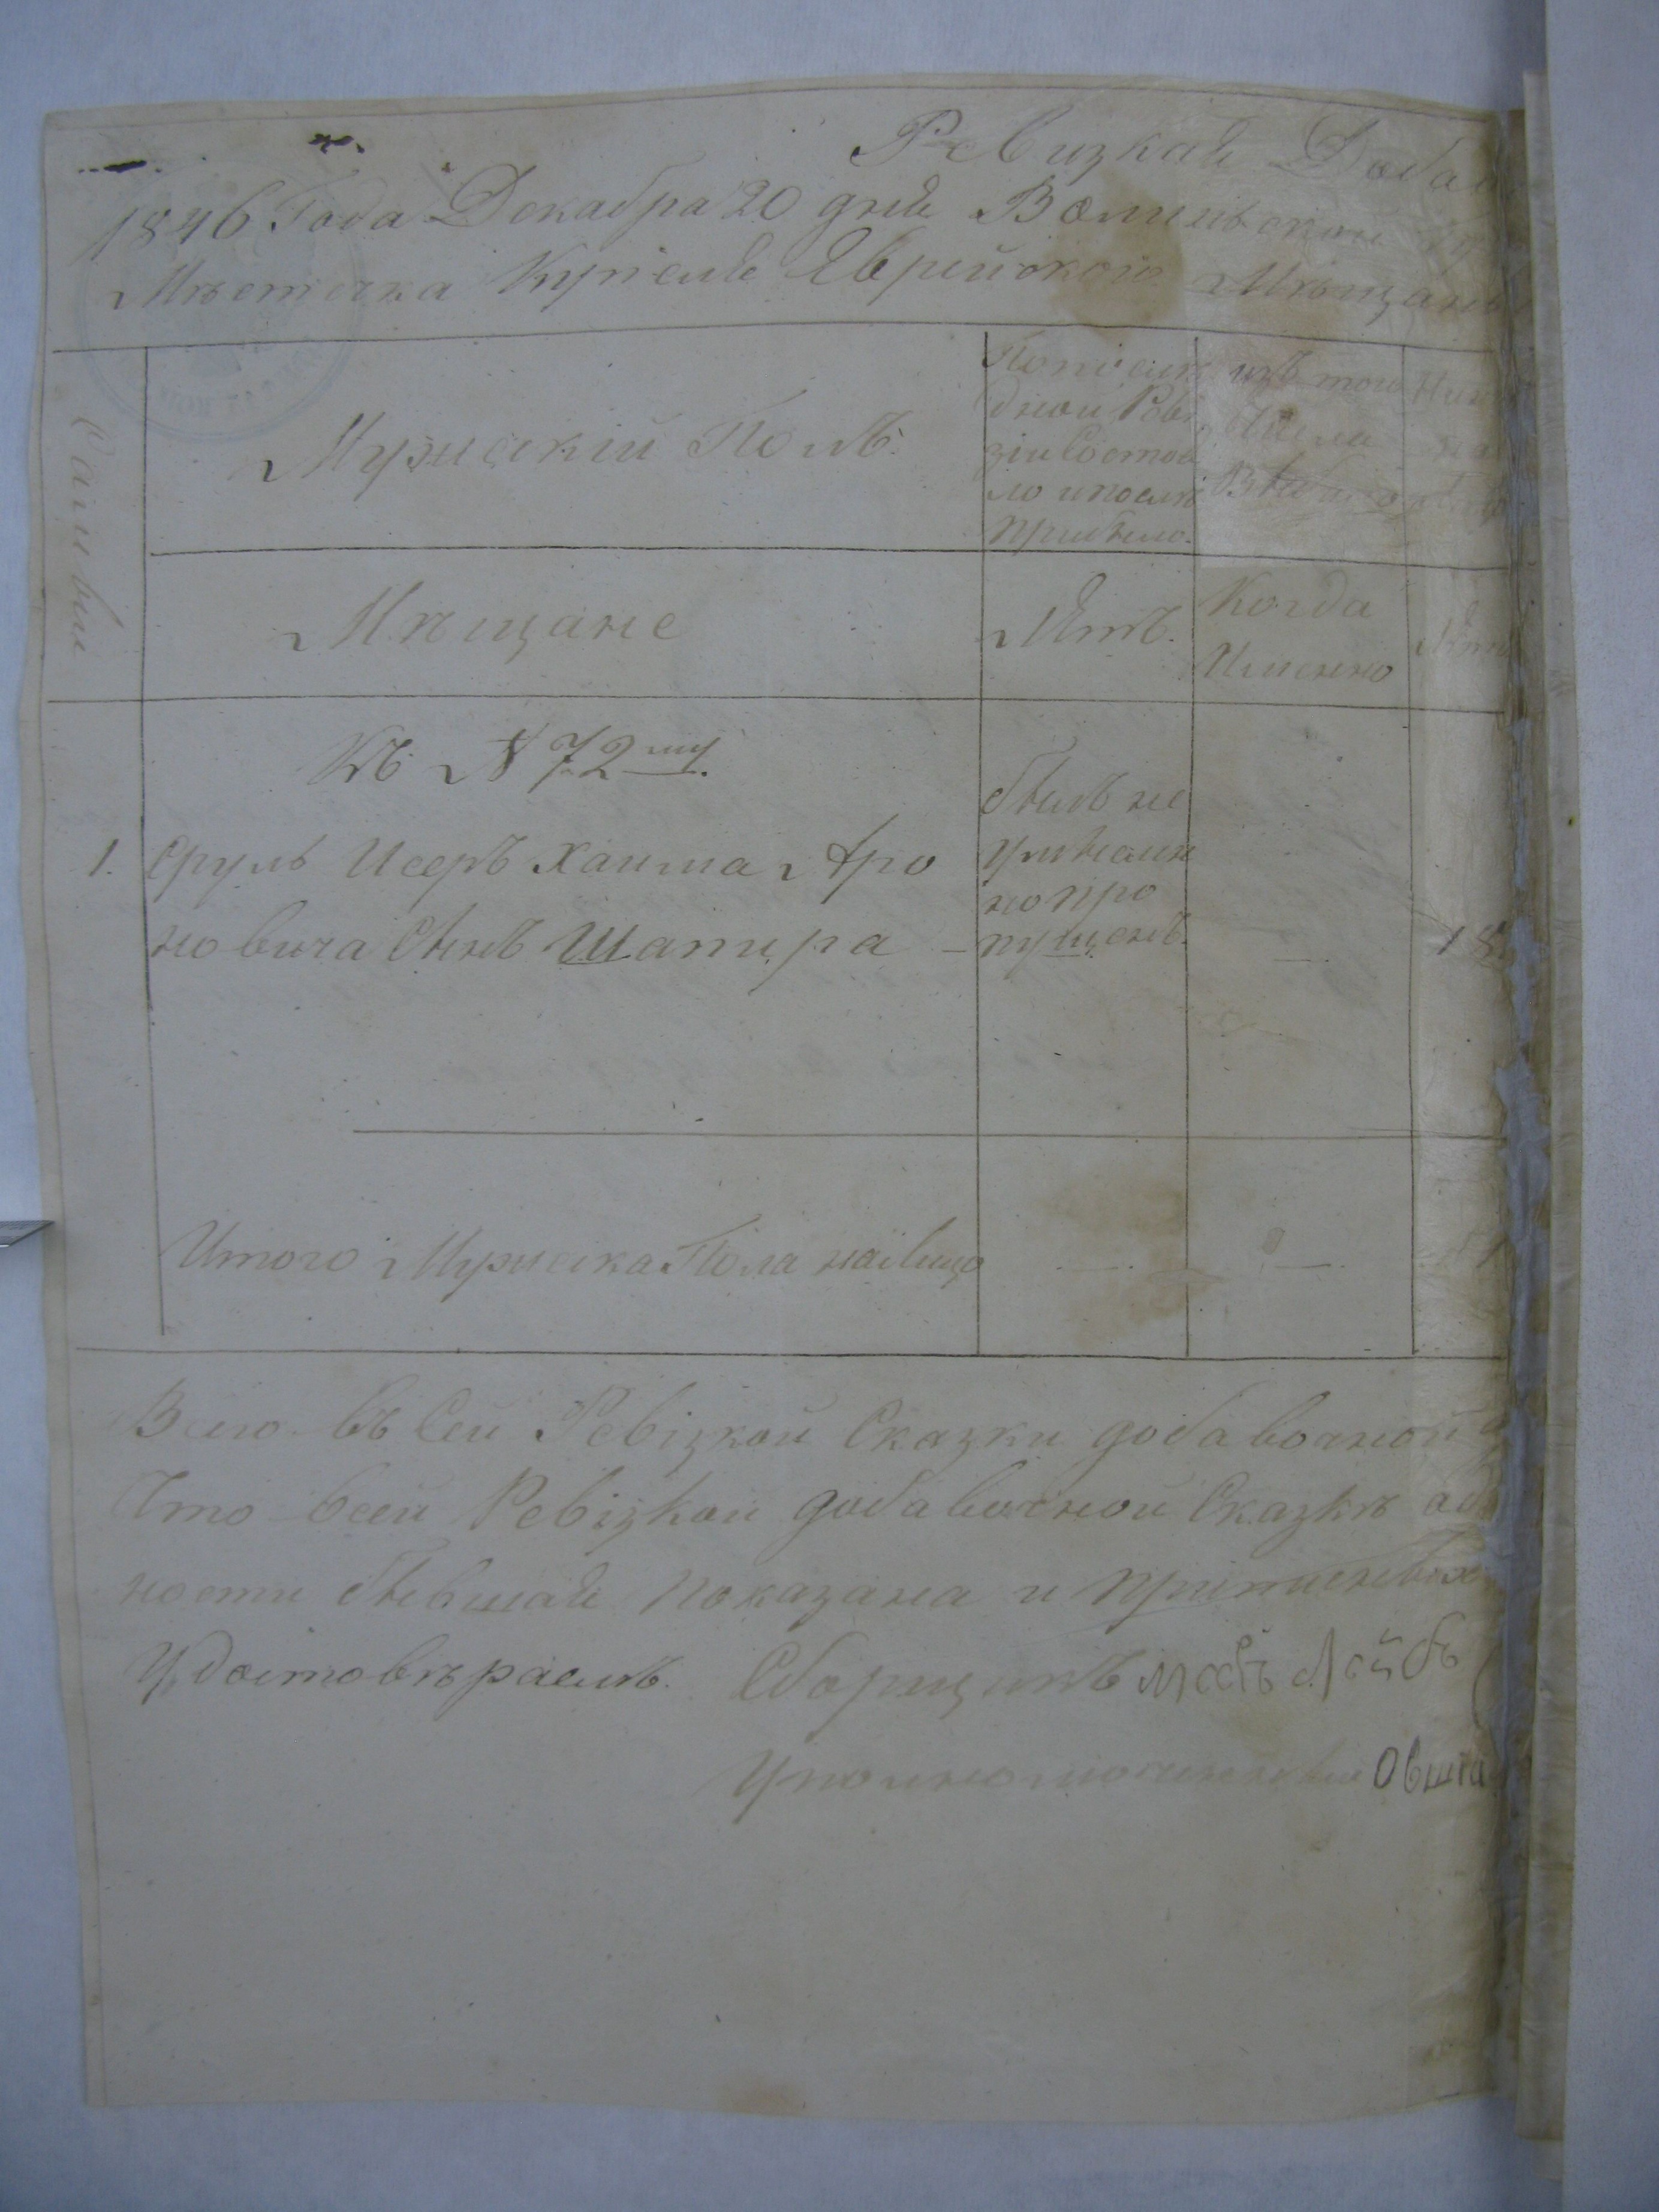 Ревизкая Доба
1846 Года Декабря 20 дня Волынской
Мѣстечка Купеля Еврейского Мѣщанъ
Мужескій Полъ
По послѣ
дной Реви
зіи Состоя
ло и послѣ
прибыло.
изъ того
Числа
Выбыло
Мѣщане
Лѣтъ.
Когда
Именно
Къ № 72му
1. Сруль Исеръ Хаима Аро
новича Сынъ Шапира –
былъ не
умышлен
но про
пущенъ.
18
Итого Мужеска Пола налицо
Всего въ сей Ревізкой Сказки добавочной
Что всей Ревізкой добавочной Сказкѣ
ности бывшая показана и
Удостовѣряемъ. Сборщикъ Лейбъ
Уполномоченный Овша